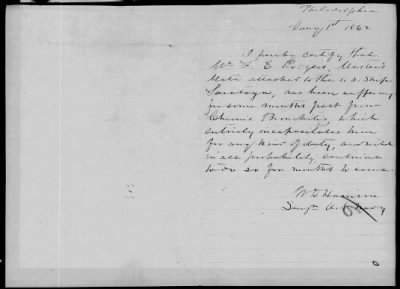 Philadelphia
Augt 1st 1862
I hereby certify that
Mr. E. Master's
Mate attached to the U.S. Ship
Saratoga, has been suffering
for some months past from
Chronic Bronchitis, which
entirely incapacitates him
for any kind of duty, and will
in all probability continue
to do so for months to come
Surgn U.S. Navy